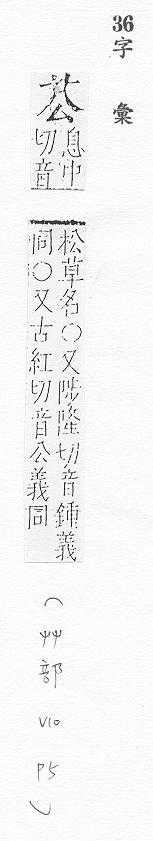 36字 彙
息中
切音
松草名○又陟隆切音鍾義
同○又古紅切音公義同
(艸部 V10 P5)